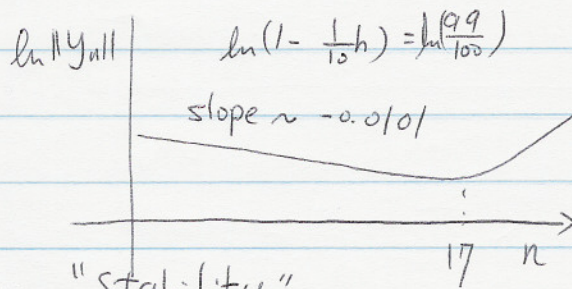 ln||yn|| ln(1 - 1/10 h) = ln(99/100)
slope ~ -0.0101
17 n
"stability"